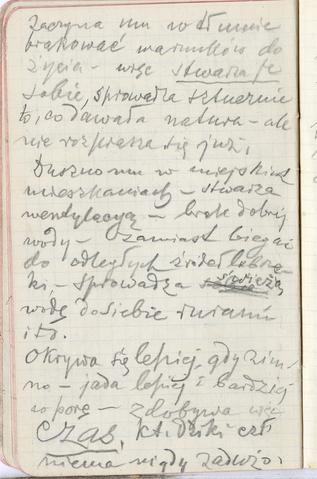 zaczyna mu w tłumie
brakować warunków do
życia – więc stwarza je
sobie, sprowadza sztucznie
to, co dawała natura – ale
nie rozprasza się już.
Duszno mu w miejskich
mieszkaniach – stwarza
wentylacyę – brak dobrej
wody – zamiast biegać
do odległych źródeł
– sprowadza świeżą
wodę do siebie rurami
itd.
Okrywa się lepiej, gdy zim-
no – jada lepiej i bardziej
w porę – zdobywa więc
czas, kt. dziki czł
niema nigdy zadużo.